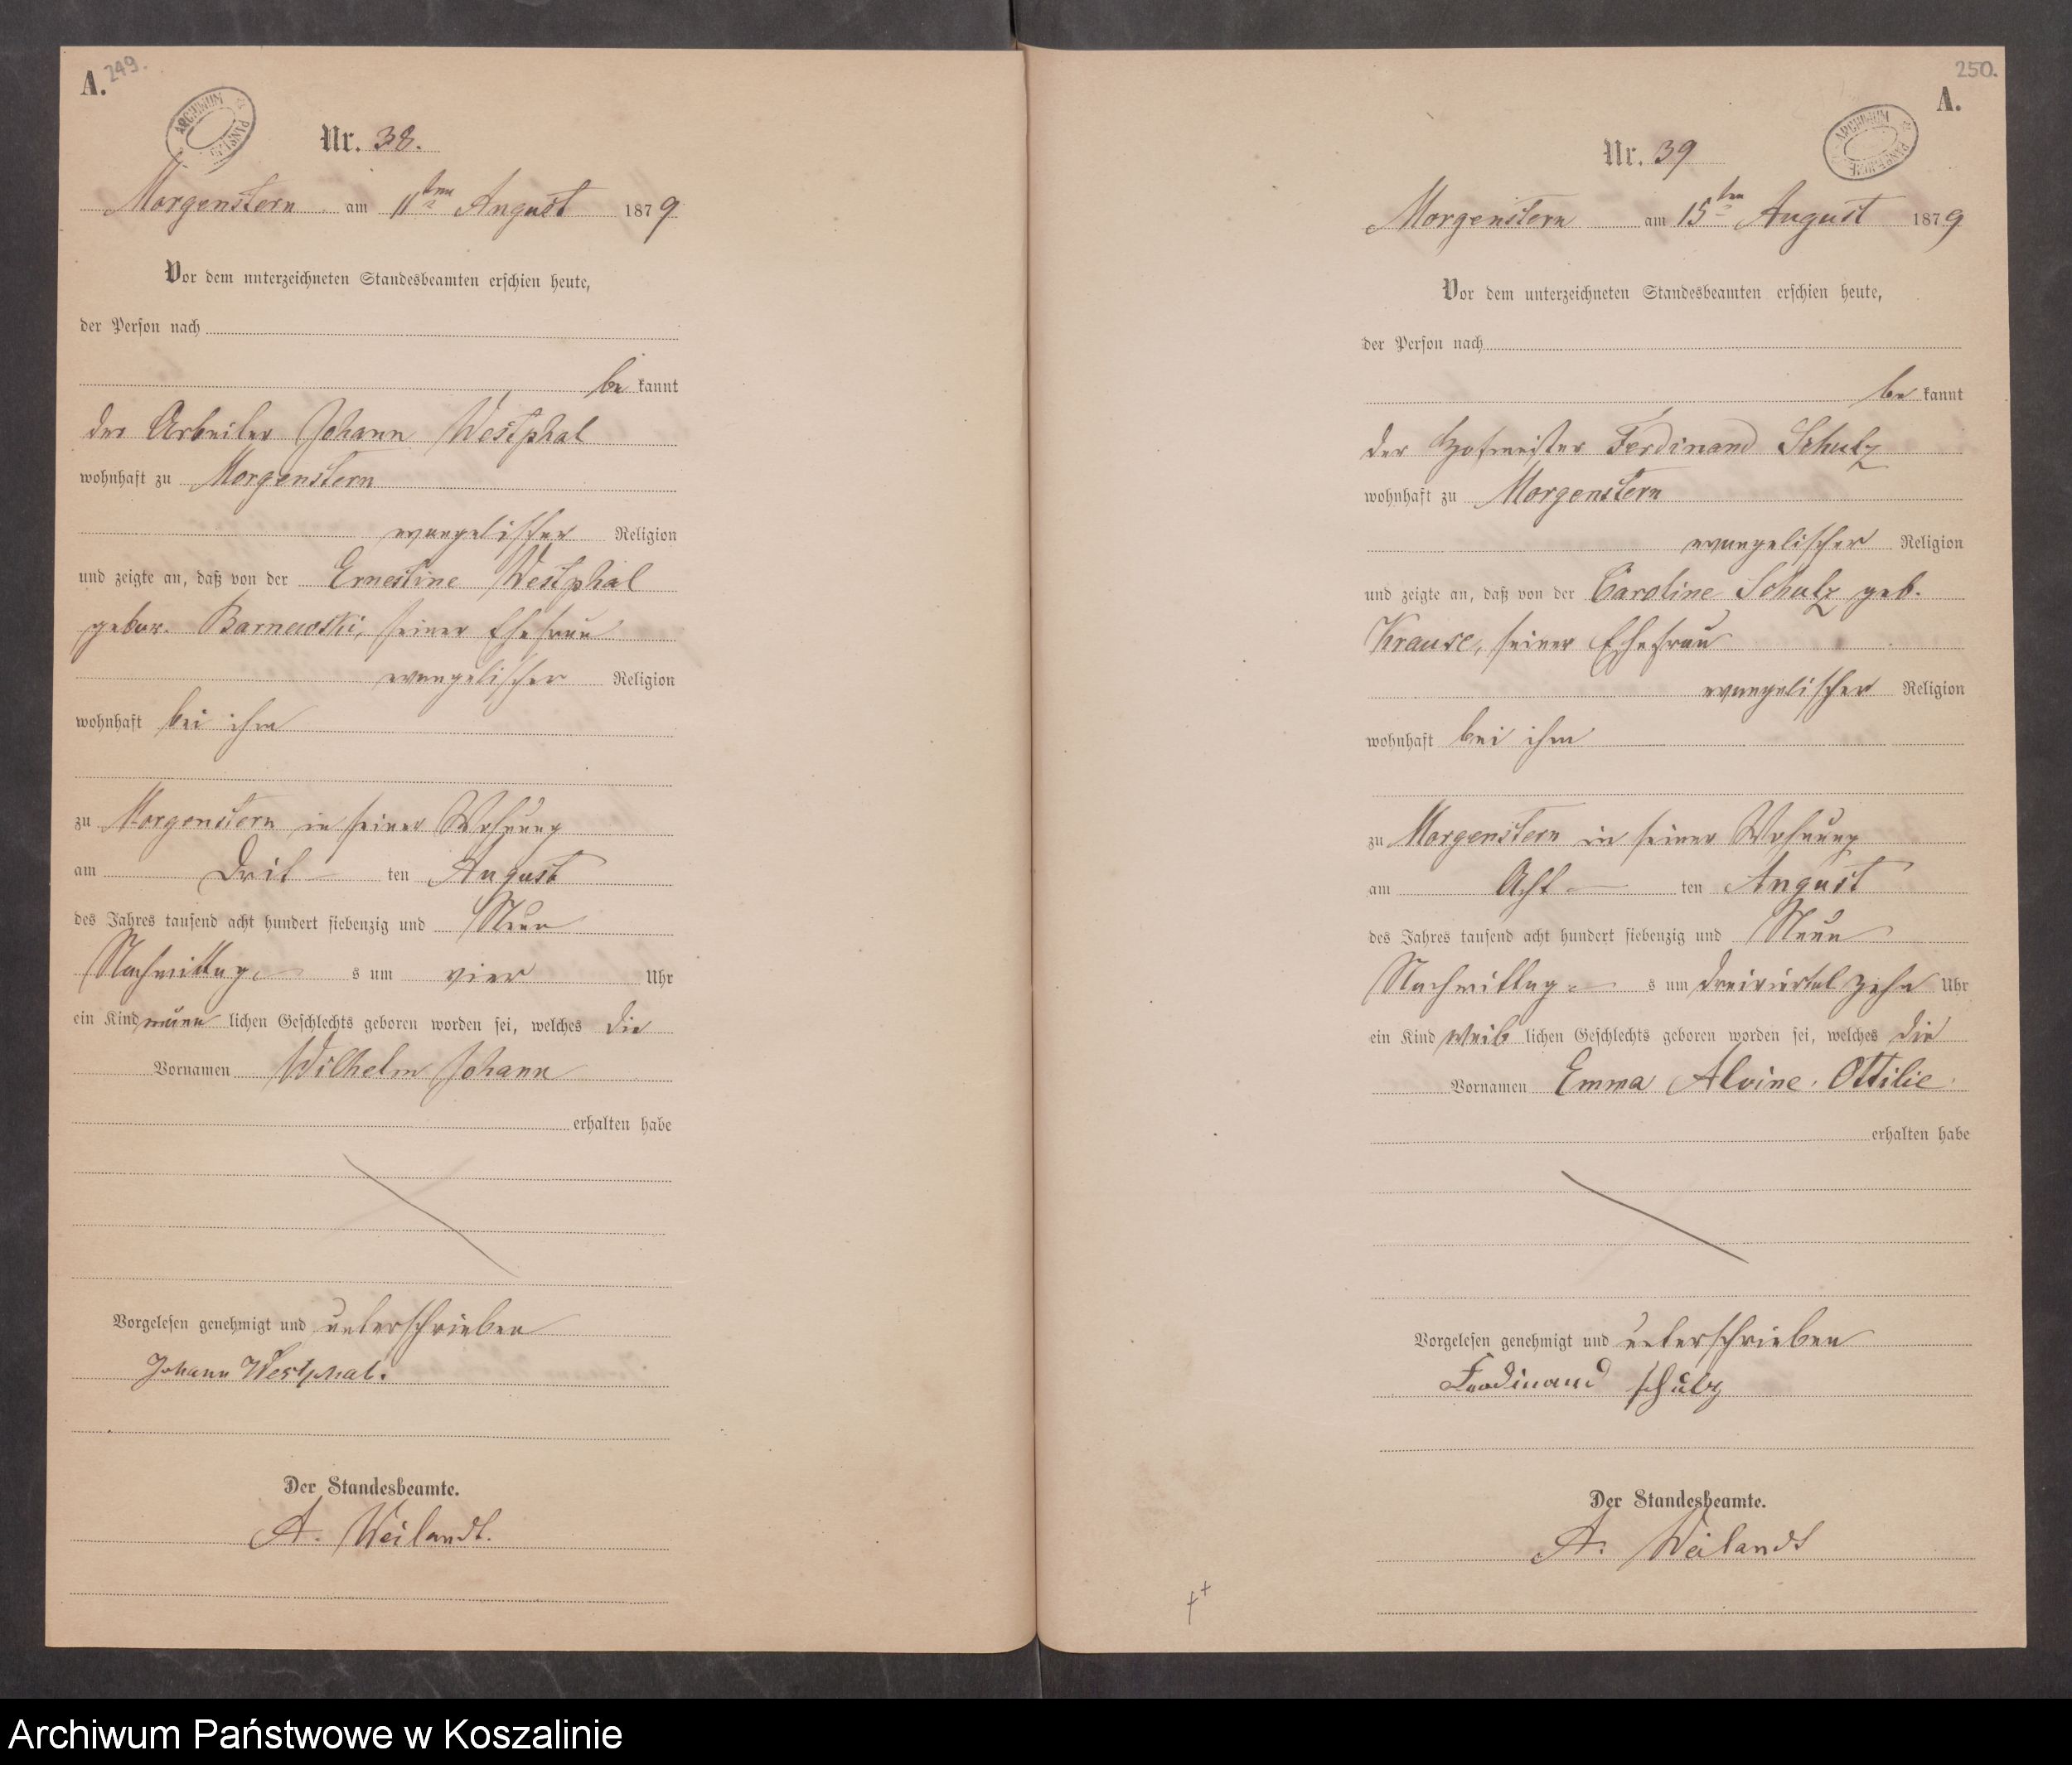 A. 249.
ARCHIWUM PAŃSTWOWE
Nr. 38.
Morgenstern am 11ten August 1879
Vor dem unterzeichneten Standesbeamten erschien heute,
der Person nach
be kannt
der Arbeiter Johann Westphal
wohnhaft zu Morgenstern
evangelischer Religion
und zeigte an, daß von der Ernestine Westphal
gebor. Barnewski, seiner Ehefrau
evangelischer Religion
wohnhaft bei ihm
zu Morgenstern in seiner Wohnung
am Drit ten August
des Jahres tausend acht hundert siebenzig und Neun
Nachmittag s um vier Uhr
ein Kind männ lichen Geschlechts geboren worden sei, welches die
Vornamen Wilhelm Johann
erhalten habe
Vorgelesen genehmigt und unterschrieben
Johann Westphal.
Der Standesbeamte.
A. Weilandt.
250.
A.
ARCHIWUM PAŃSTWOWE
Nr. 39
Morgenstern am 15ten August 1879
Vor dem unterzeichneten Standesbeamten erschien heute,
der Person nach
be kannt
der Hofmeister Ferdinand Schulz
wohnhaft zu Morgenstern
evangelischer Religion
und zeigte an, daß von der Caroline Schulz geb.
Krause, seiner Ehefrau
evangelischer Religion
wohnhaft bei ihm
zu Morgenstern in seiner Wohnung
am Acht ten August
des Jahres tausend acht hundert siebenzig und Neun
Nachmittag s um dreiviertel zehn Uhr
ein Kind weib lichen Geschlechts geboren worden sei, welches die
Vornamen Emma Alvine Ottilie
erhalten habe
Vorgelesen genehmigt und unterschrieben
Ferdinand Schulz
Der Standesbeamte.
A. Weilandt
Archiwum Państwowe w Koszalinie